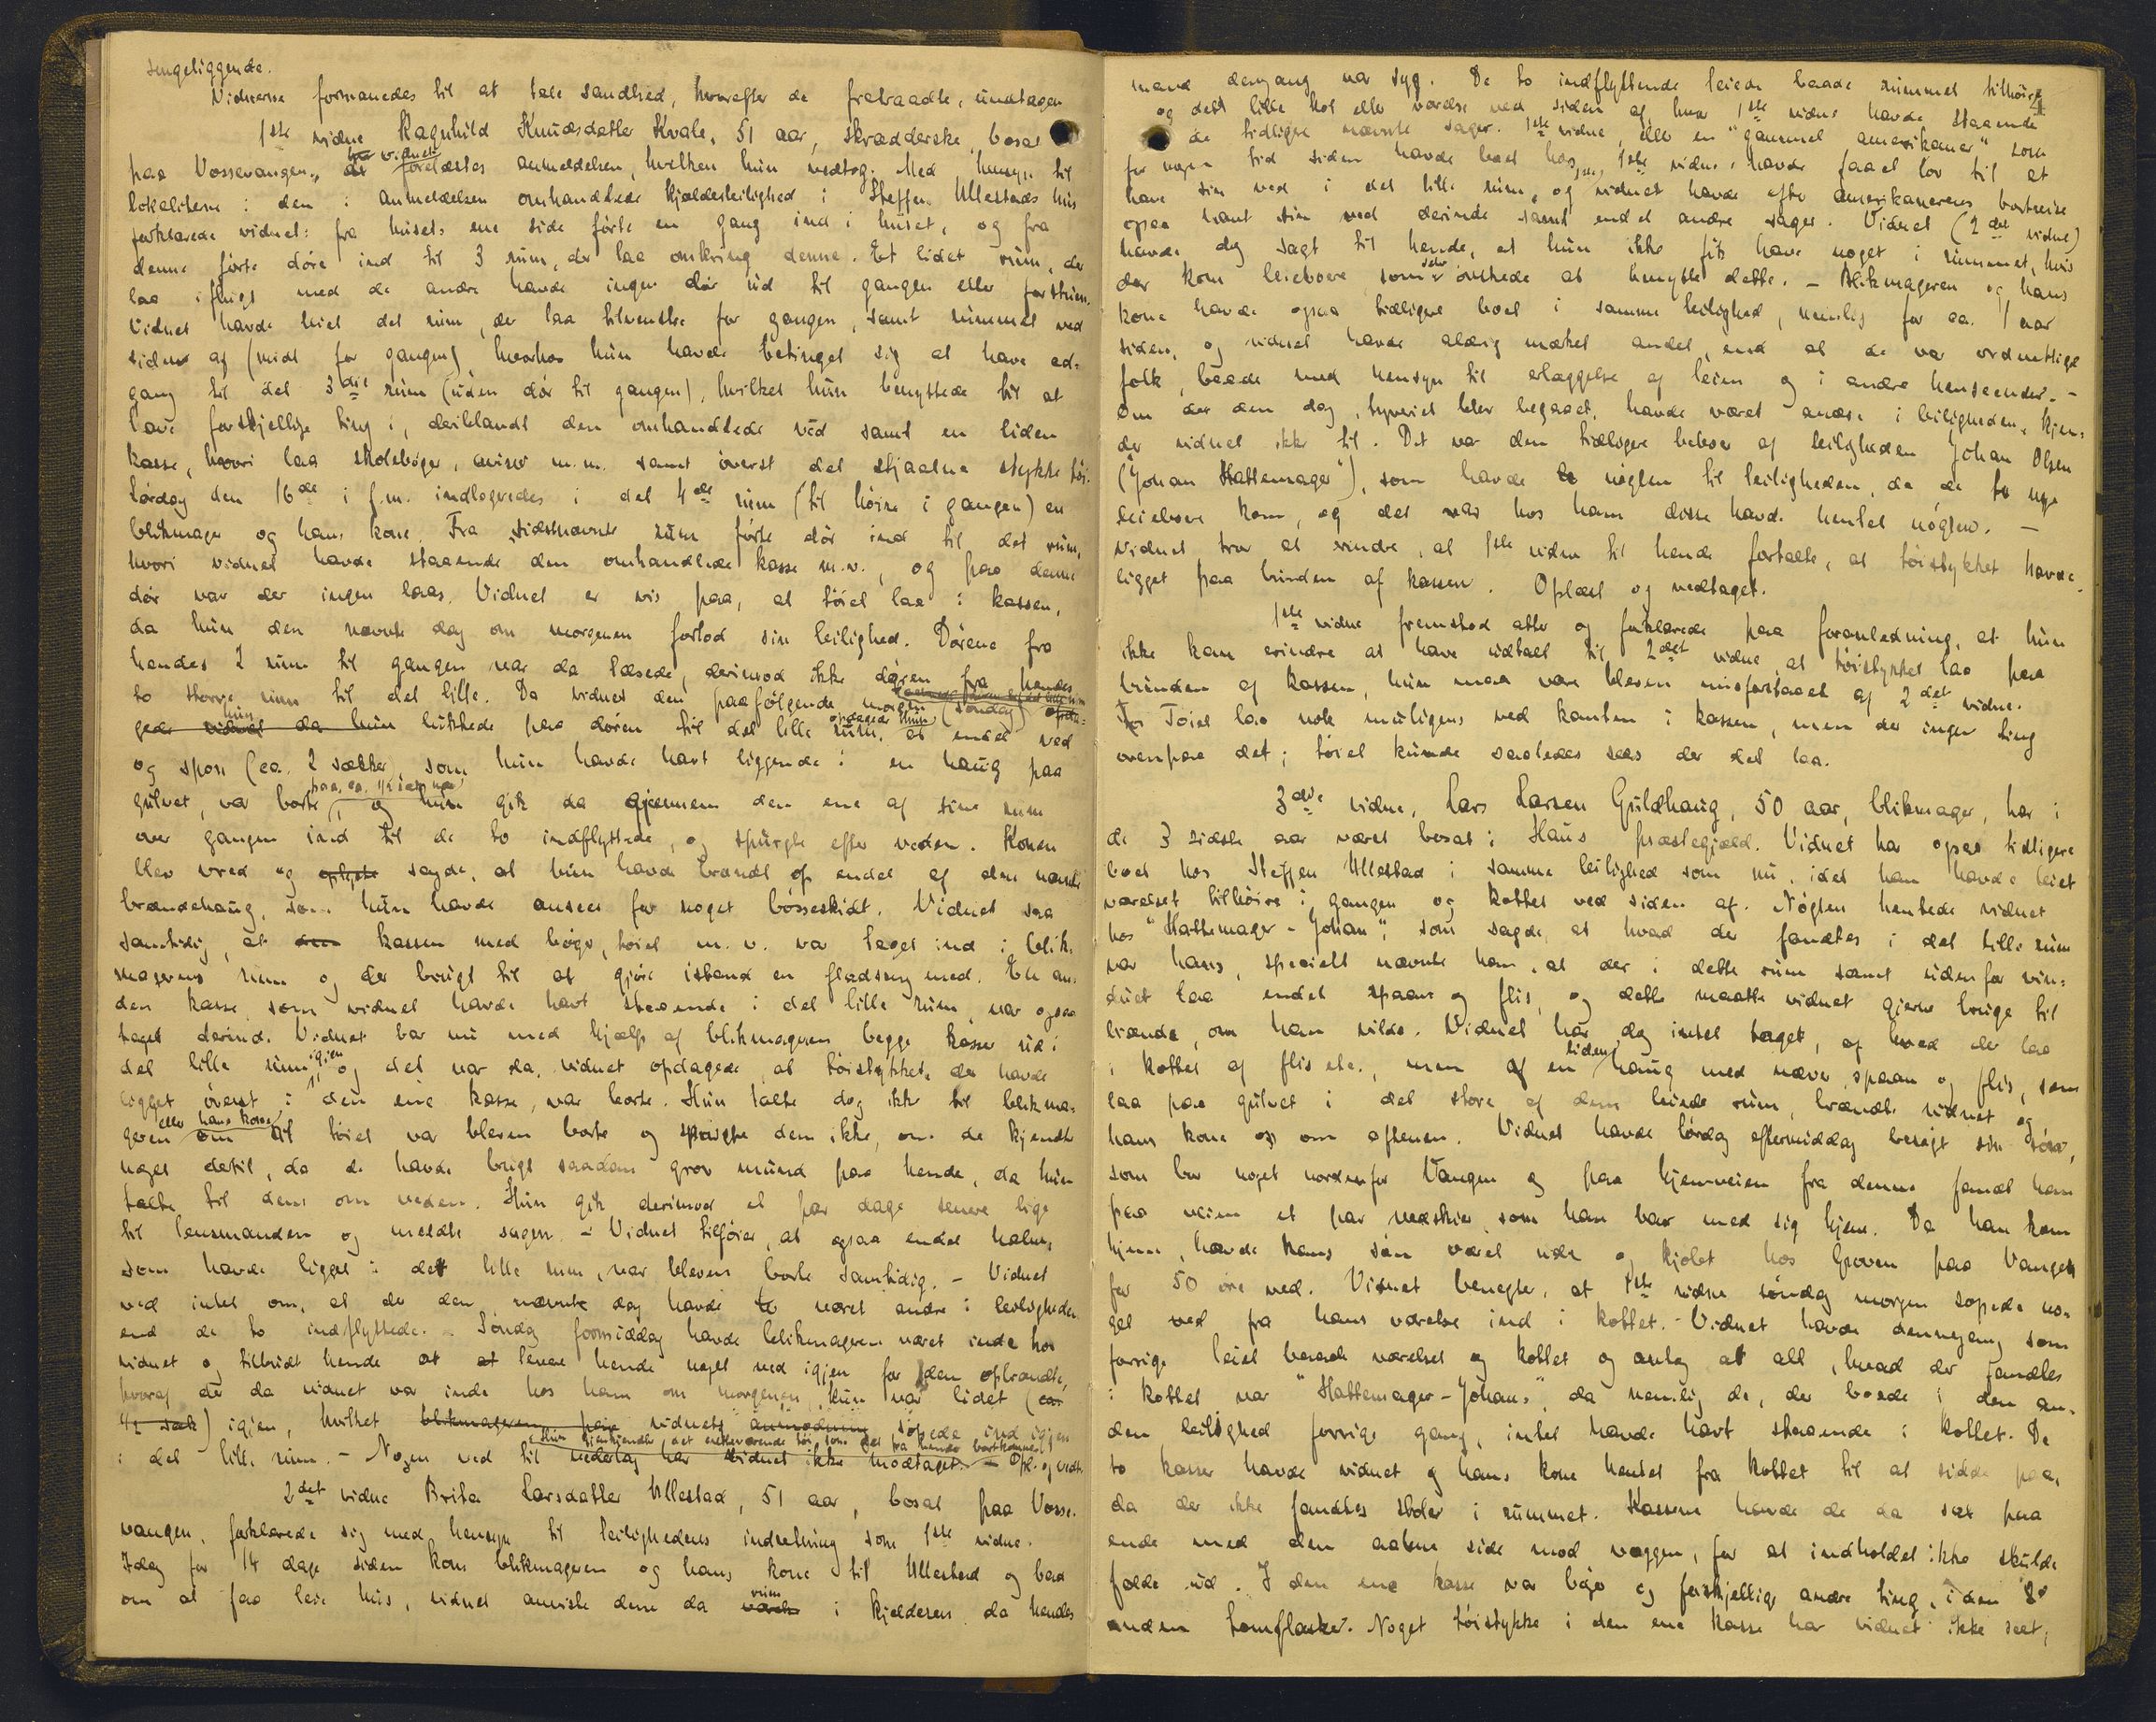 sengeliggende.
Vidnerne formanedes til at tale sandhed, hvorefter de fratraadte, undtagen
1ste vidne Ragnhild Knudsdatter Kvale, 51 aar, skrædderske, bosat
paa Vossevangen, for vidnet forelæstes anmeldelsen, hvilken hun vedtog. Med hensyn til
lokaliteterne i den i anmeldelsen omhandlede kjælderleilighed i Steffen Ullestads hus
forklarede vidnet: fra husets ene side førte en gang ind i huset, og fra
denne førte døre ind til 3 rum, der laa omkring denne. Et lidet rum, der
laa i flugt med de andre havde ingen dør ud til gangen eller forstuen.
Vidnet havde leiet det rum, der laa tilvenstre for gangen, samt rummet ved
siden af (midt for gangen) hvorhos hun havde betinget sig at have ad-
gang til det 3die rum (uden dør til gangen), hvilket hun benyttede til at
have forskjellige ting i, deriblandt den omhandlede ved samt en liden
kasse, hvori laa skolebøger, aviser m.m. samt øverst det stjaalne stykke tøi.
Lørdag den 16de i f.m. indlogeredes i det 4de rum (til høire i gangen) en
blikmager og hans kone. Fra sidstnævnte rum førte dør ind til det rum,
hvori vidnet havde staaende den omhandlede kasse m.v., og paa denne
dør var der ingen laas. Vidnet er vis paa, at tøiet laa i kassen,
da hun den nævnte dag om morgenen forlod sin leilighed. Dørene fra
hendes 2 rum til gangen var da læsede, derimod ikke døren fra hendes
to større rum til det lille. Da vidnet den paafølgende morgen (søndag) opda-
gede vidnet da hun lukkede paa døren til det lille rum, opdagede hun at endel ved
og spon (ca. 2 sække) som hun havde havt liggende i en haug paa
gulvet, var borte, og hun gik da gjennem den ene af sine rum
over gangen ind til de to indflyttede, og spurgte efter veden. Konen
blev vred og oplyste sagde, at hun havde brændt op endel af den nævnte
brændehaug, som hun havde anseet for noget bosseskidt. Vidnet saa
samtidig, at den kassen med bøger, tøiet m.v. var taget ind i blik-
magerens rum og der brugt til at gjøre istand en fladseng med. En an-
den kasse, som vidnet havde havt staaende i det lille rum, var ogsaa
taget derind. Vidnet bar nu med hjælp af blikmageren begge kasser ud i
det lille rum igjen og det var da, vidnet opdagede, at tøistykket, der havde
ligget øverst i den ene kasse, var borte. Hun talte dog ikke til blikma-
geren eller hans kone om at tøiet var bleven borte og spurgte dem ikke, om de kjendte
noget dertil, da de havde brugt saadan grov mund paa hende, da hun
talte til dem om veden. Hun gik derimod et par dage senere lige
til lensmanden og meldte sagen. – Vidnet tilføier, at ogsaa endel halm,
som havde ligget i det lille rum, var bleven borte samtidig. – Vidnet
ved intet om, at der den nævnte dag havde været andre i leiligheden
end de to indflyttede. – Søndag formiddag havde blikmageren været inde hos
vidnet og tilbudt hende at levere hende noget ved igjen for den opbrændte,
hvoraf der da vidnet var inde hos ham om morgenen, kun var lidet (ca
1/2 sæk) igjen, hvilket blikmageren paa vidnets anmodning sopede ind igjen
i det lille rum. – Nogen ved til vederlag har vidnet ikke modtaget. – Hun gjenkjendte det erhvervende tøi som det fra hende bortkomne. Opl. og vedt.
2det vidne Brita Larsdatter Ullestad, 51 aar, bosat paa Vosse-
vangen, forklarede sig med hensyn til leilighedens indretning som 1ste vidne.
Idag for 14 dage siden kom blikmageren og hans kone til Ullestad og bad
om at faa leie hus, vidnet anviste dem da rum i kjælderen, da hendes
4
mand dengang var syg. De to indflyttende leiede baade rummet tilhøire
og det lille kot eller værelse ved siden af, hvor 1ste vidne havde staaende
de tidligere nævnte sager. 1ste vidne, eller en "gammel amerikaner" som
for nogen tid siden havde boet hos 1ste vidne, havde faaet lov til at
have sin ved i det lille rum, og vidnet havde efter amerikanerens bortreise
ogsaa havt sin ved derinde samt endel andre sager. Vidnet (2det vidne)
havde dog sagt til hende, at hun ikke fik have noget i rummet, hvis
der kom leieboere, som selv ønskede at benytte dette. – Blikmageren og hans
kone havde ogsaa tidligere boet i samme leilighed, nemlig for ca. 1 aar
siden, og vidnet havde aldrig mærket andet, end at de var ordentlige
folk, baade med hensyn til erlæggelse af leien og i andre henseender. –
Om der den dag, tyveriet blev begaaet, havde været andre i leiligheden, kjen-
der vidnet ikke til. Det var den tidligere beboer af leiligheden Johan Olsen
("Johan Hattemager"), som havde nøglen til leiligheden, da de to nye
leieboere kom, og det var hos ham disse havde hentet nøglen. –
Vidnet tror at erindre, at 1ste vidne til hende fortalte, at tøistykket havde
ligget paa bunden af kassen. Oplæst og vedtaget.
1ste vidne fremstod atter og forklarede paa foranledning, at hun
ikke kan erindre at have udtalt til 2det vidne, at tøistykket laa paa
bunden af kassen, hun maa være bleven misforstaaet af 2det vidne.
Tøiet laa nok muligens ved kanten i kassen, men der ingen ting
ovenpaa det; tøiet kunde saaledes sees der det laa.
3die vidne, Lars Larsen Guldhaug, 50 aar, blikmager, har i
de 3 sidste aar været bosat i Haus præstegjæld. Vidnet har ogsaa tidligere
boet hos Steffen Ullestad i samme leilighed som nu, idet han havde leiet
værelset tilhøire i gangen og kottet ved siden af. Nøglen hentede vidnet
hos "Hattemager-Johan", som sagde, at hvad der fandtes i det lille rum
var hans, specielt nævnte han, at der i dette rum samt udenfor vin-
duet laa endel spaan og flis, og dette maatte vidnet gjerne bruge til
brænde, om han vilde. Vidnet har dog intet taget, af hvad der laa
i kottet af flis etc., men af en liden haug med næver, spaan og flis, som
laa paa gulvet i det store af dem leiede rum, brændte vidnet og
hans kone op om aftenen. Vidnet havde lørdag eftermiddag besøgt sin søn,
som bor noget nordenfor Vangen og paa hjemveien fra denne fandt han
paa veien et par vedskier, som han bar med sig hjem. Da han kom
hjem, havde hans søn været ude og kjøbt hos Groven paa Vangen
for 50 øre ved. Vidnet benegter, at 1ste vidne søndag morgen sopede no-
get ved fra hans værelse ind i kottet. – Vidnet havde dennegang som
forrige leiet baade værelset og kottet og antog at alt, hvad der fandtes
i kottet var "Hattemager-Johans", da nemlig de, der boede i den an-
den leilighed forrige gang, intet havde havt staaende i kottet. De
to kasser havde vidnet og hans kone hentet fra kottet til at sidde paa,
da der ikke fandtes stoler i rummet. Kasserne havde de da sat paa
ende med den aabne side mod væggen, for at indholdet ikke skulde
falde ud. I den ene kasse var bøger og forskjellige andre ting, i den
anden tomflasker. Noget tøistykke i den ene kasse har vidnet ikke seet,